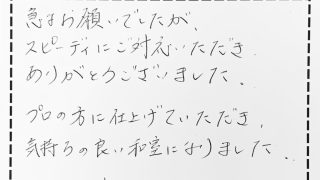 急なお願いでしたが、
スピーディにご対応いただき
ありがとうございました。
プロの方に仕上げていただき、
気持ちの良い和室になりました。